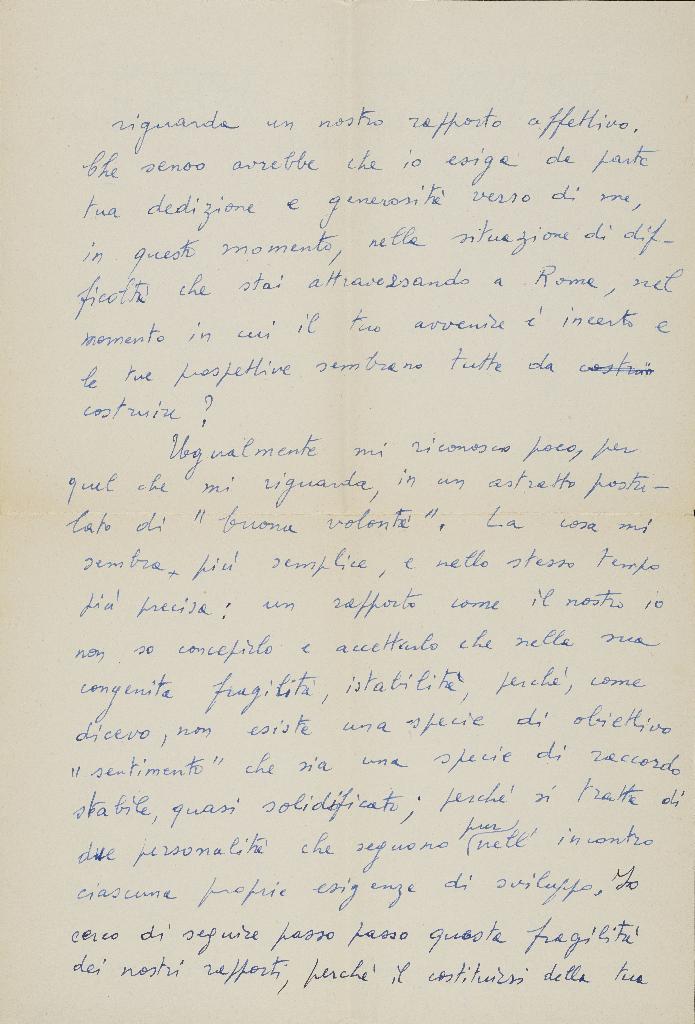 riguarda un nostro rapporto affettivo.
Che senso avrebbe che io esiga da parte
tua dedizione e generosità verso di me,
in questo momento, nella situazione di dif-
ficoltà che stai attraversando a Roma, nel
momento in cui il tuo avvenire è incerto e
le tue prospettive sembrano tutte da costrui
costruire?
Ugualmente mi riconosco poco, per
quel che mi riguarda, in un astratto postu-
lato di "buona volontà". La cosa mi
sembra più semplice, e nello stesso tempo
più precisa: un rapporto come il nostro io
non so concepirlo e accettarlo che nella sua
congenita fragilità, istabilità, perché, come
dicevo, non esiste una specie di obiettivo
"sentimento" che sia una specie di raccordo
stabile, quasi solidificato; perché si tratta di
due personalità che seguono pur nell'incontro
ciascuna proprie esigenze di sviluppo. Io
cerco di seguire passo passo questa fragilità
dei nostri rapporti, perché il costituirsi della tua